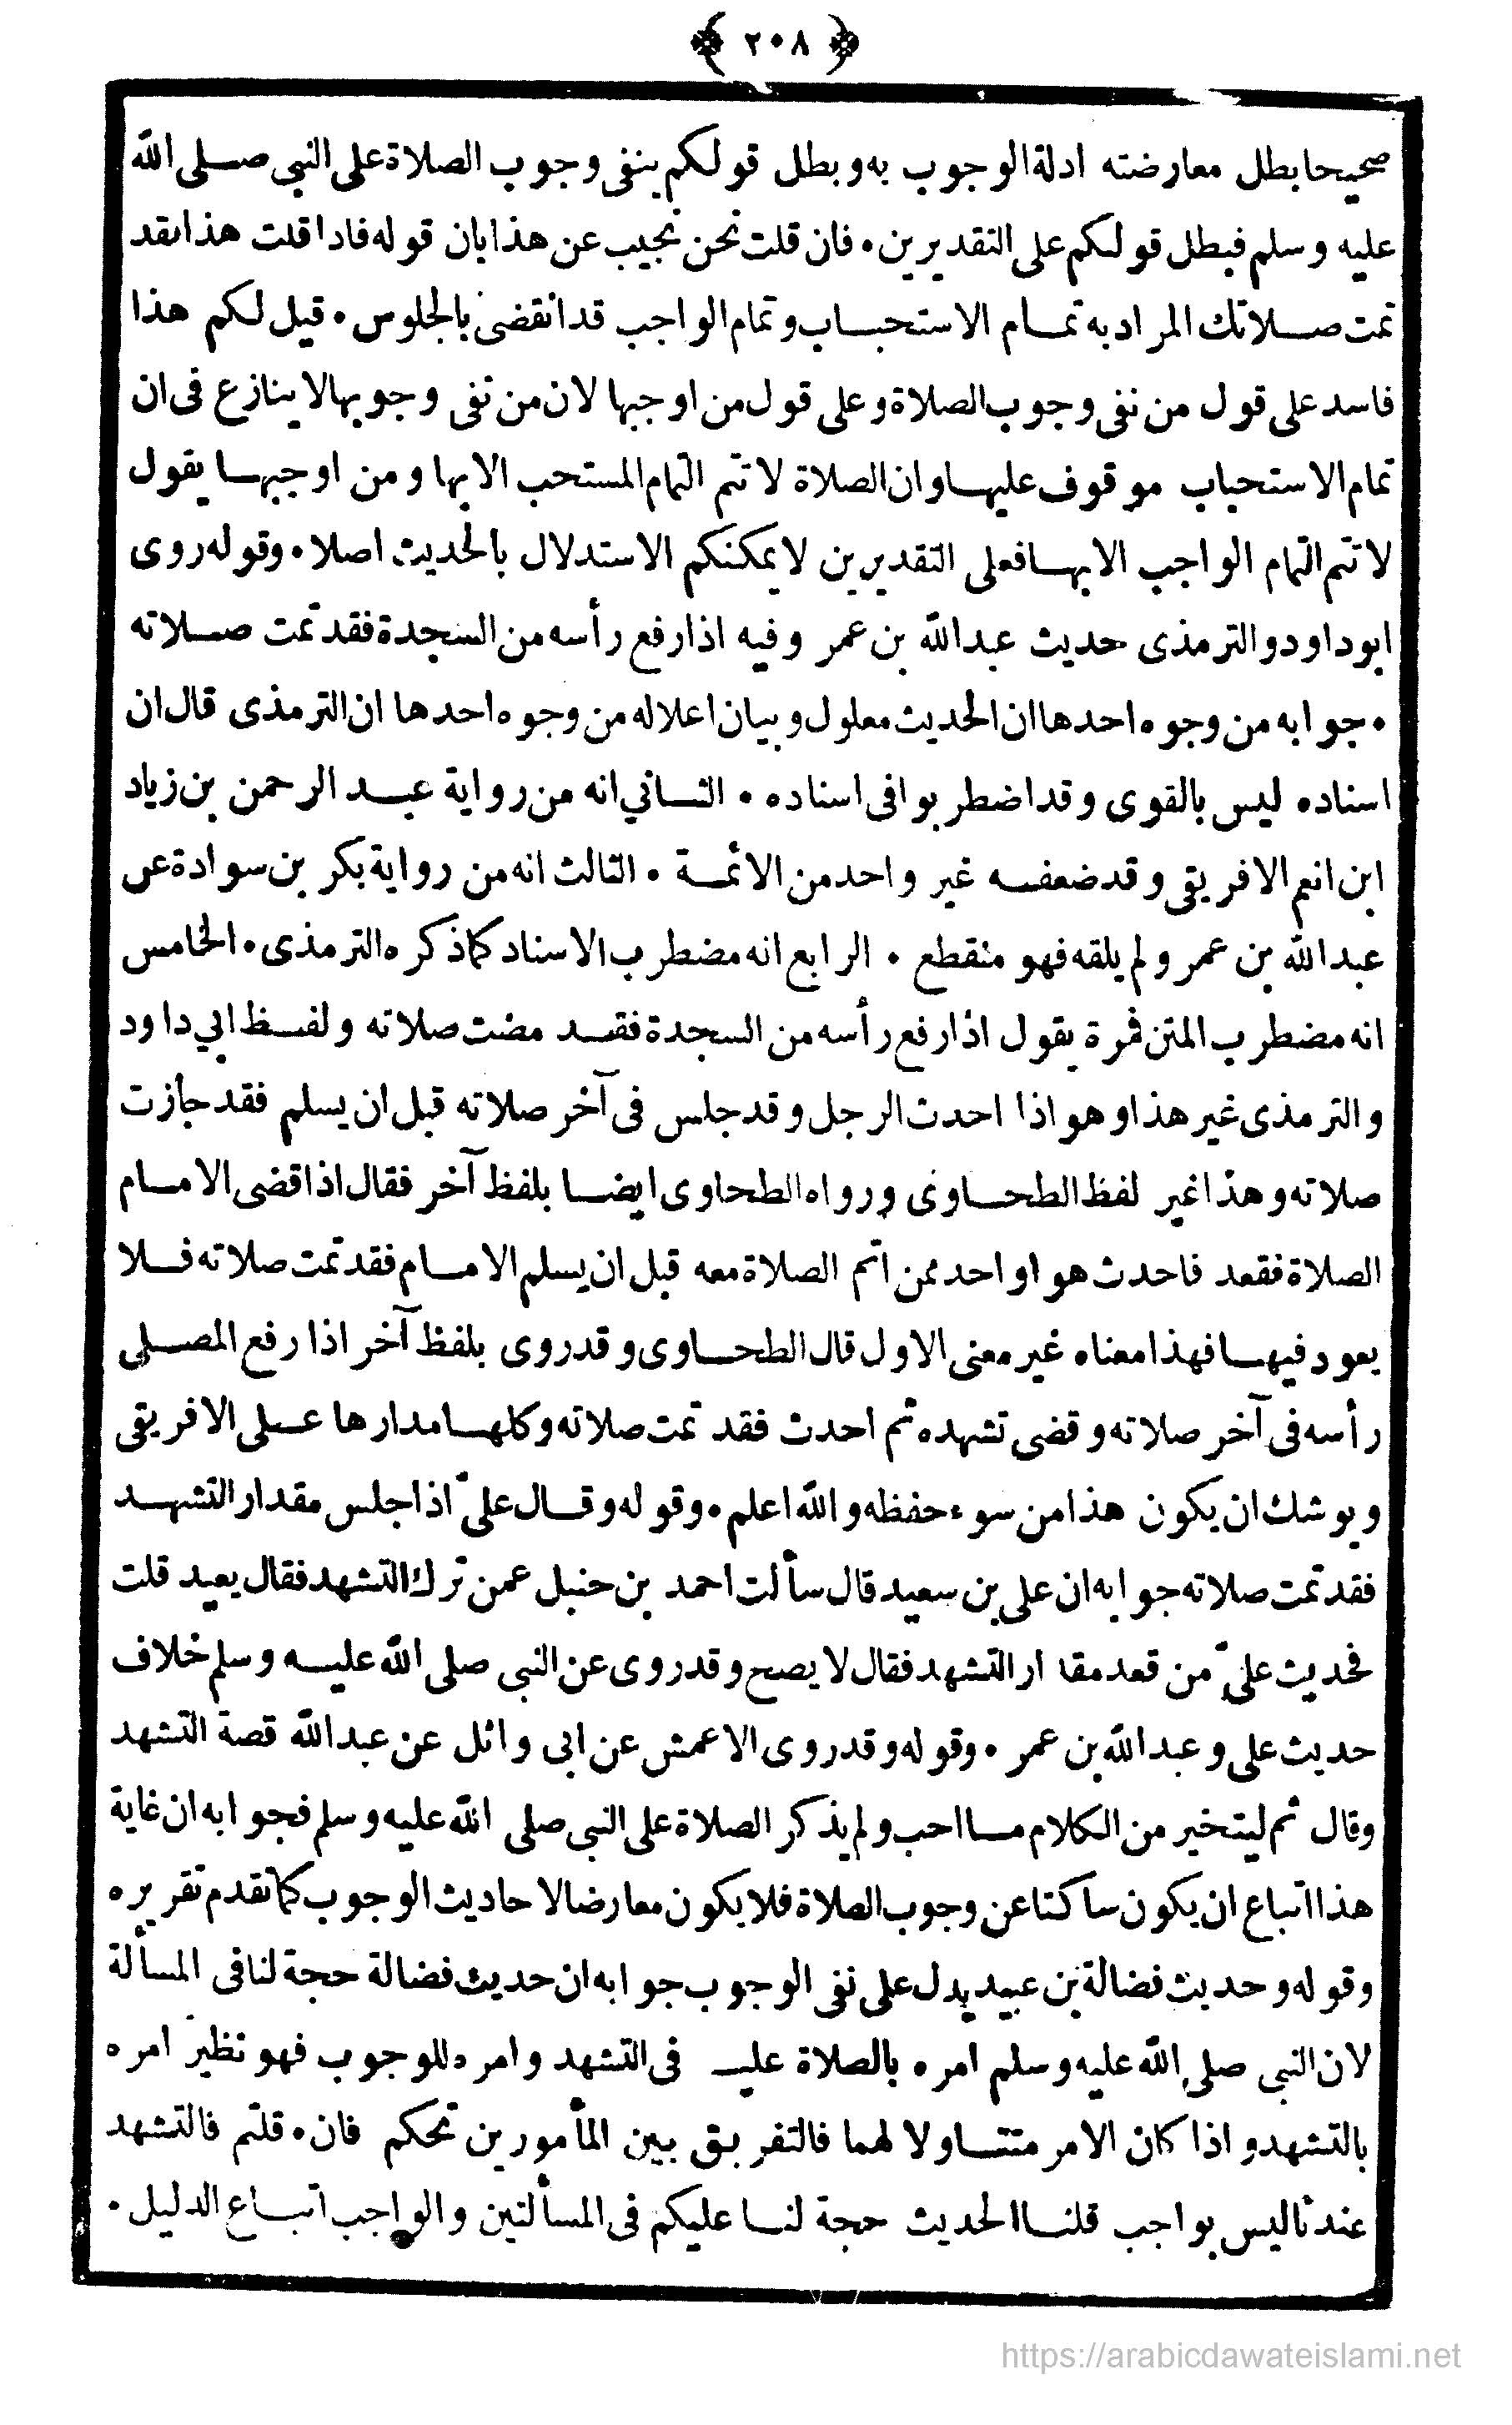 ٢٠٨
صحيحا بطل معارضته ادلة الوجوب به وبطل قولكم بنفى وجوب الصلاة على النبي صلى الله
عليه وسلم فبطل قولكم على التقديرين • فان قلت نحن نجيب عن هذا بان قوله فاذا قلت هذا فقد
تمت صلاتك المراد به تمام الاستحباب وتمام الواجب قد انقضى بالجلوس • قيل لكم هذا
فاسد على قول من نفى وجوب الصلاة وعلى قول من اوجبها لان من نفى وجوبها لا ينازع فى ان
تمام الاستحباب موقوف عليها وان الصلاة لا تتم التمام المستحب الا بها ومن اوجبها يقول
لا تتم التمام الواجب الا بها فعلى التقديرين لا يمكنكم الاستدلال بالحديث اصلا • وقوله روى
ابوداود والترمذى حديث عبدالله بن عمر وفيه اذا رفع رأسه من السجدة فقد تمت صلاته
• جوابه من وجوه احدها ان الحديث معلول وبيان اعلاله من وجوه احدها ان الترمذى قال ان
اسناده ليس بالقوى وقد اضطربوا فى اسناده • الثاني انه من رواية عبد الرحمن بن زياد
ابن انعم الافريقى وقد ضعفه غير واحد من الائمة • الثالث انه من رواية بكر بن سوادة عن
عبدالله بن عمر ولم يلقه فهو منقطع • الرابع انه مضطرب الاسناد كما ذكره الترمذى • الخامس
انه مضطرب المتن فمرة يقول اذا رفع رأسه من السجدة فقد مضت صلاته ولفظ ابي داود
والترمذى غير هذا وهو اذا احدث الرجل وقد جلس فى آخر صلاته قبل ان يسلم فقد جازت
صلاته وهذا غير لفظ الطحاوى ورواه الطحاوى ايضا بلفظ آخر فقال اذا قضى الامام
الصلاة فقعد فاحدث هو او احد ممن اتم الصلاة معه قبل ان يسلم الامام فقد تمت صلاته فلا
يعود فيها فهذا معناه غير معنى الاول قال الطحاوى وقد روى بلفظ آخر اذا رفع المصلى
رأسه فى آخر صلاته وقضى تشهده ثم احدث فقد تمت صلاته وكلها مدارها على الافريقى
ويوشك ان يكون هذا من سوء حفظه والله اعلم • وقوله وقال علىّ اذا جلس مقدار التشهد
فقد تمت صلاته جوابه ان على بن سعيد قال سألت احمد بن حنبل عمن ترك التشهد فقال يعيد قلت
فحديث علىّ من قعد مقدار التشهد فقال لا يصح وقد روى عن النبى صلى الله عليه وسلم خلاف
حديث على وعبدالله بن عمر • وقوله وقد روى الاعمش عن ابى وائل عن عبدالله قصة التشهد
وقال ثم ليتخير من الكلام ما احب ولم يذكر الصلاة على النبى صلى الله عليه وسلم فجوابه ان غاية
هذا اتباع ان يكون ساكتا عن وجوب الصلاة فلا يكون معارضا لاحاديث الوجوب كما تقدم تقريره
وقوله وحديث فضالة بن عبيد يدل على نفى الوجوب جوابه ان حديث فضالة حجة لنا فى المسألة
لان النبى صلى الله عليه وسلم امره بالصلاة عليه فى التشهد وامره للوجوب فهو نظير امره
بالتشهد واذا كان الامر متناولا لهما فالتفريق بين المأمورين تحكم فان • قلتم فالتشهد
عندنا ليس بواجب قلنا الحديث حجة لنا عليكم فى المسألتين والواجب اتباع الدليل •
https://arabicdawateislami.net